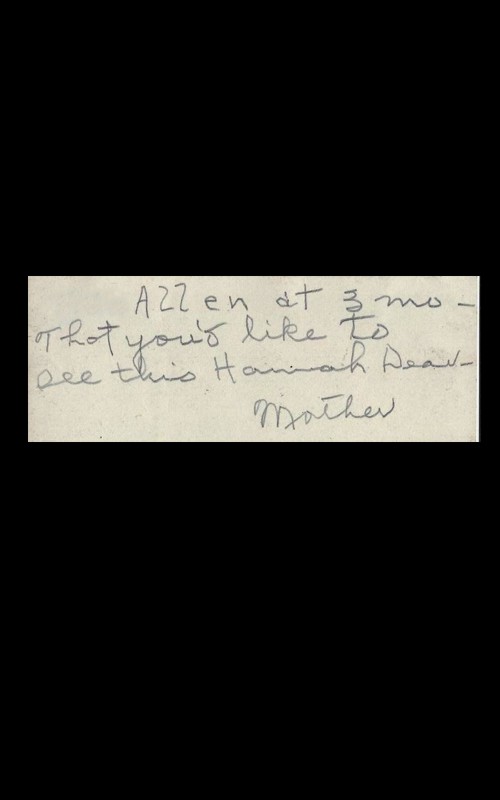 Allen at 3 mo -
Thot you'd like to
see this Hannah Dear -
Mother